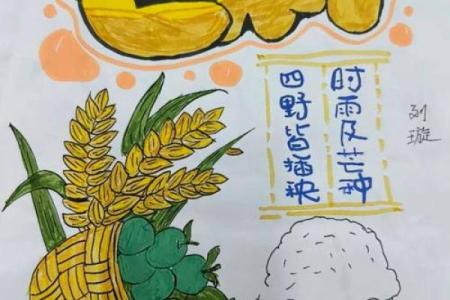 时雨及芒种
四野皆插秧
刘璇